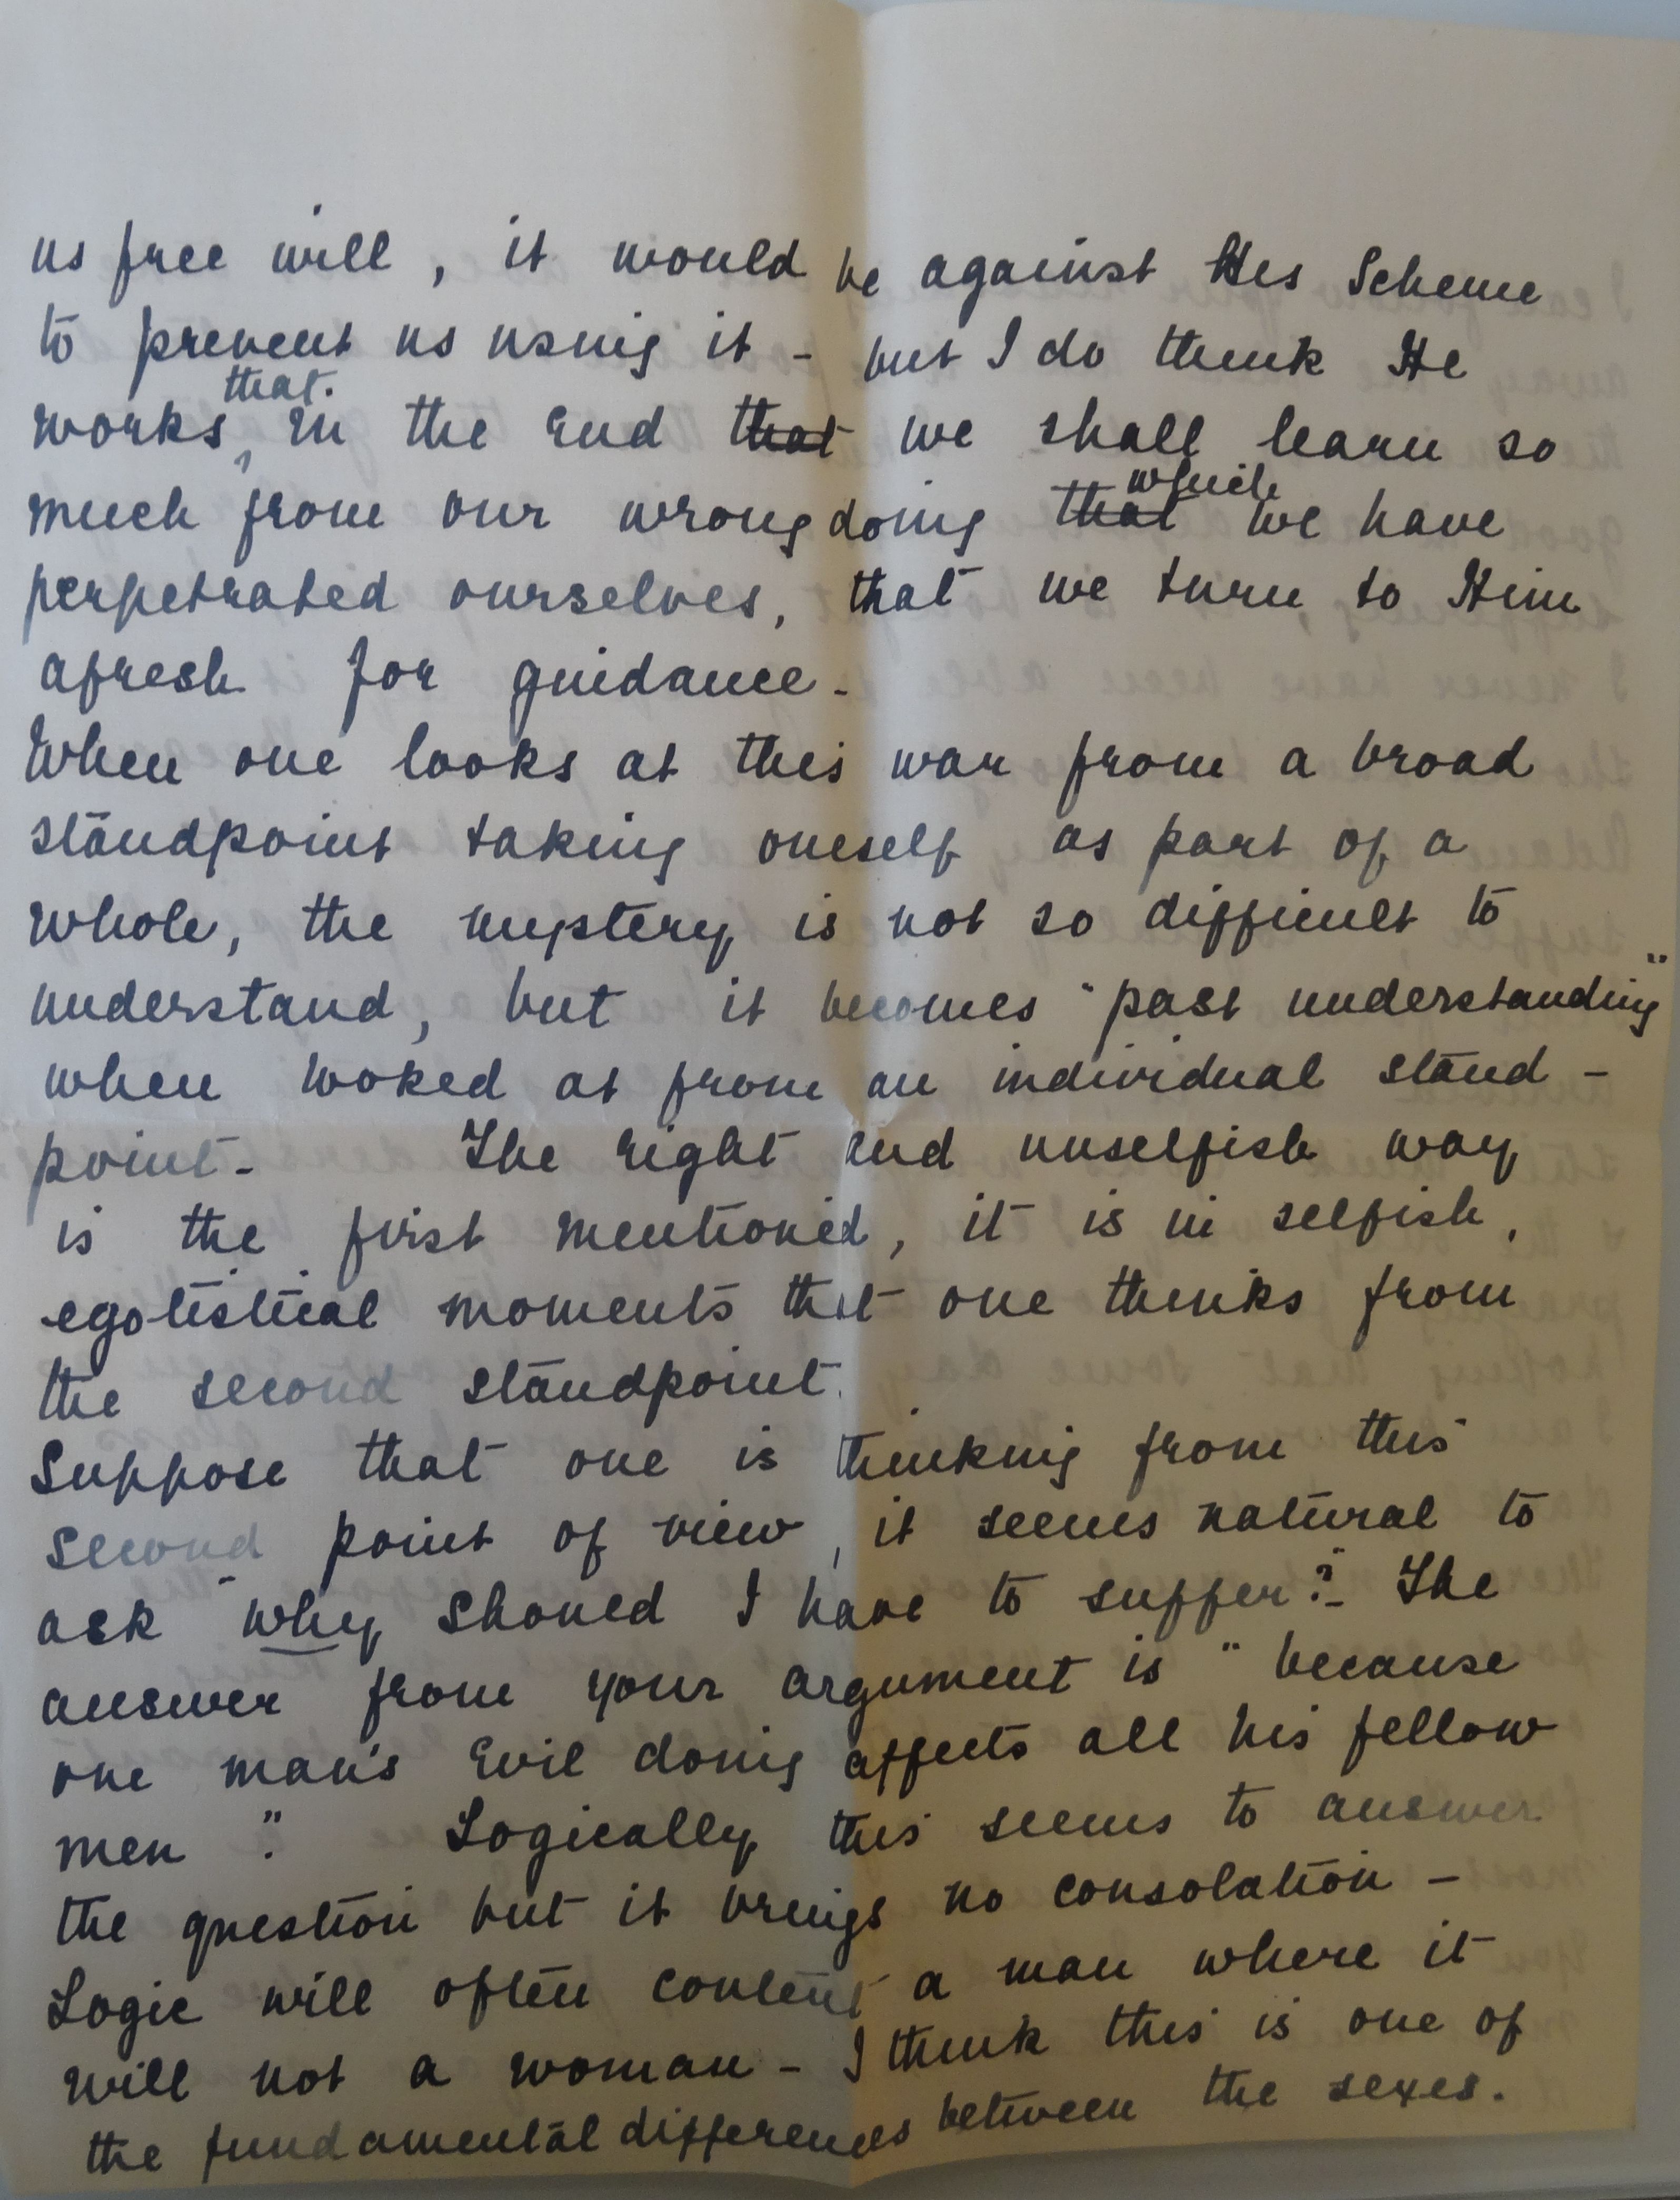 us free will, it would be against His Scheme
to prevent us using it - but I do think He
that.
works, in the End that we shall learn so
which
much from our wrong doing that we have
perpetrated ourselves, that we turn to Him
afresh for guidance -
When one looks at this war from a broad
standpoint taking oneself as part of a
whole, the mystery is not so difficult to
understand, but it becomes "past understanding"
when looked at from an individual stand -
point - The right and unselfish way
is the first mentioned, it is in selfish,
egotistical moments that one thinks from
the second standpoint.
Suppose that one is thinking from this
second point of view, it seems natural to
ask "why should I have to suffer?" The
answer from your argument is "because
one man's Evil doing affects all his fellow
men". Logically this seems to answer
the question but it brings no consolation -
Logic will often content a man where it
will not a woman - I think this is one of
the fundamental differences between the sexes.